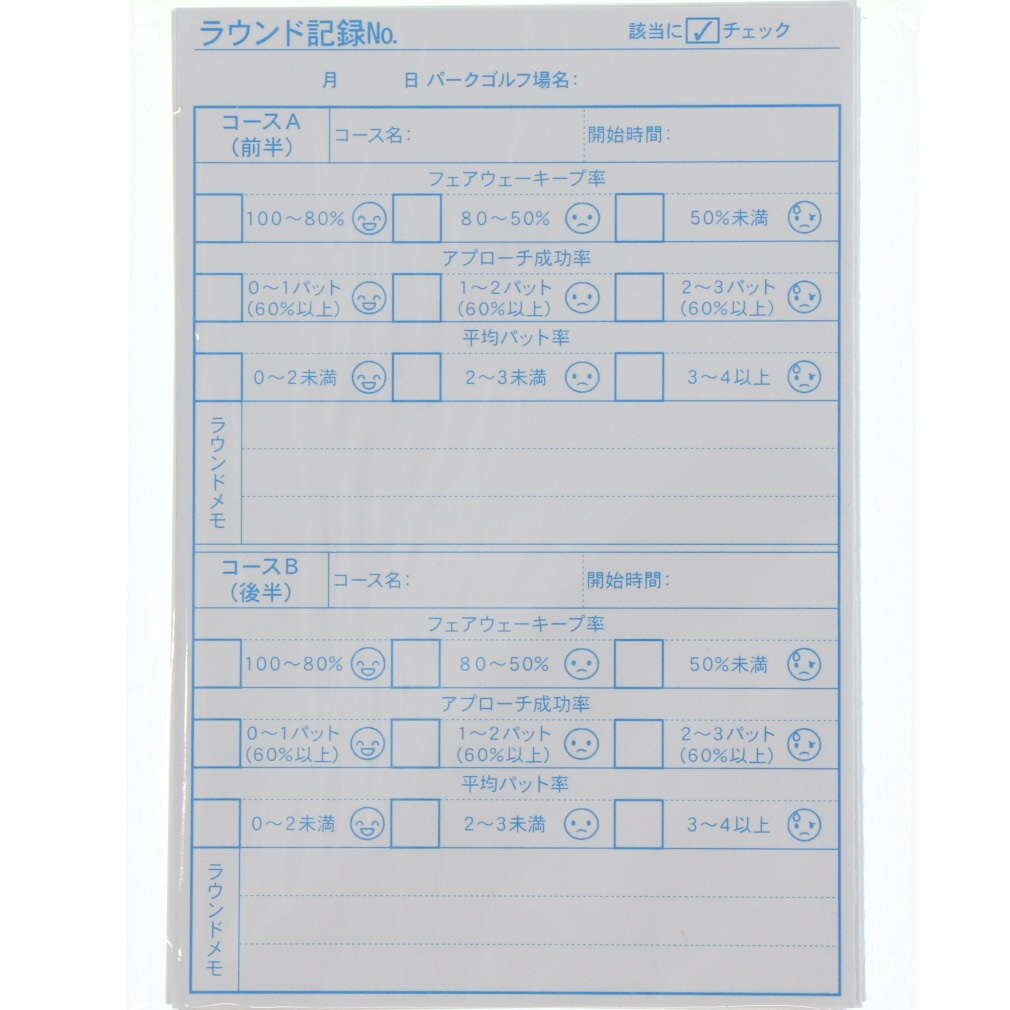 ラウンド記録No.
該当に✓チェック
月 日 パークゴルフ場名:
コースA
(前半)
コース名:
開始時間:
フェアウェーキープ率
100～80%
80～50%
50%未満
アプローチ成功率
0～1パット
(60%以上)
1～2パット
(60%以上)
2～3パット
(60%以上)
平均パット率
0～2未満
2～3未満
3～4以上
ラウンドメモ
コースB
(後半)
コース名:
開始時間:
フェアウェーキープ率
100～80%
80～50%
50%未満
アプローチ成功率
0～1パット
(60%以上)
1～2パット
(60%以上)
2～3パット
(60%以上)
平均パット率
0～2未満
2～3未満
3～4以上
ラウンドメモ